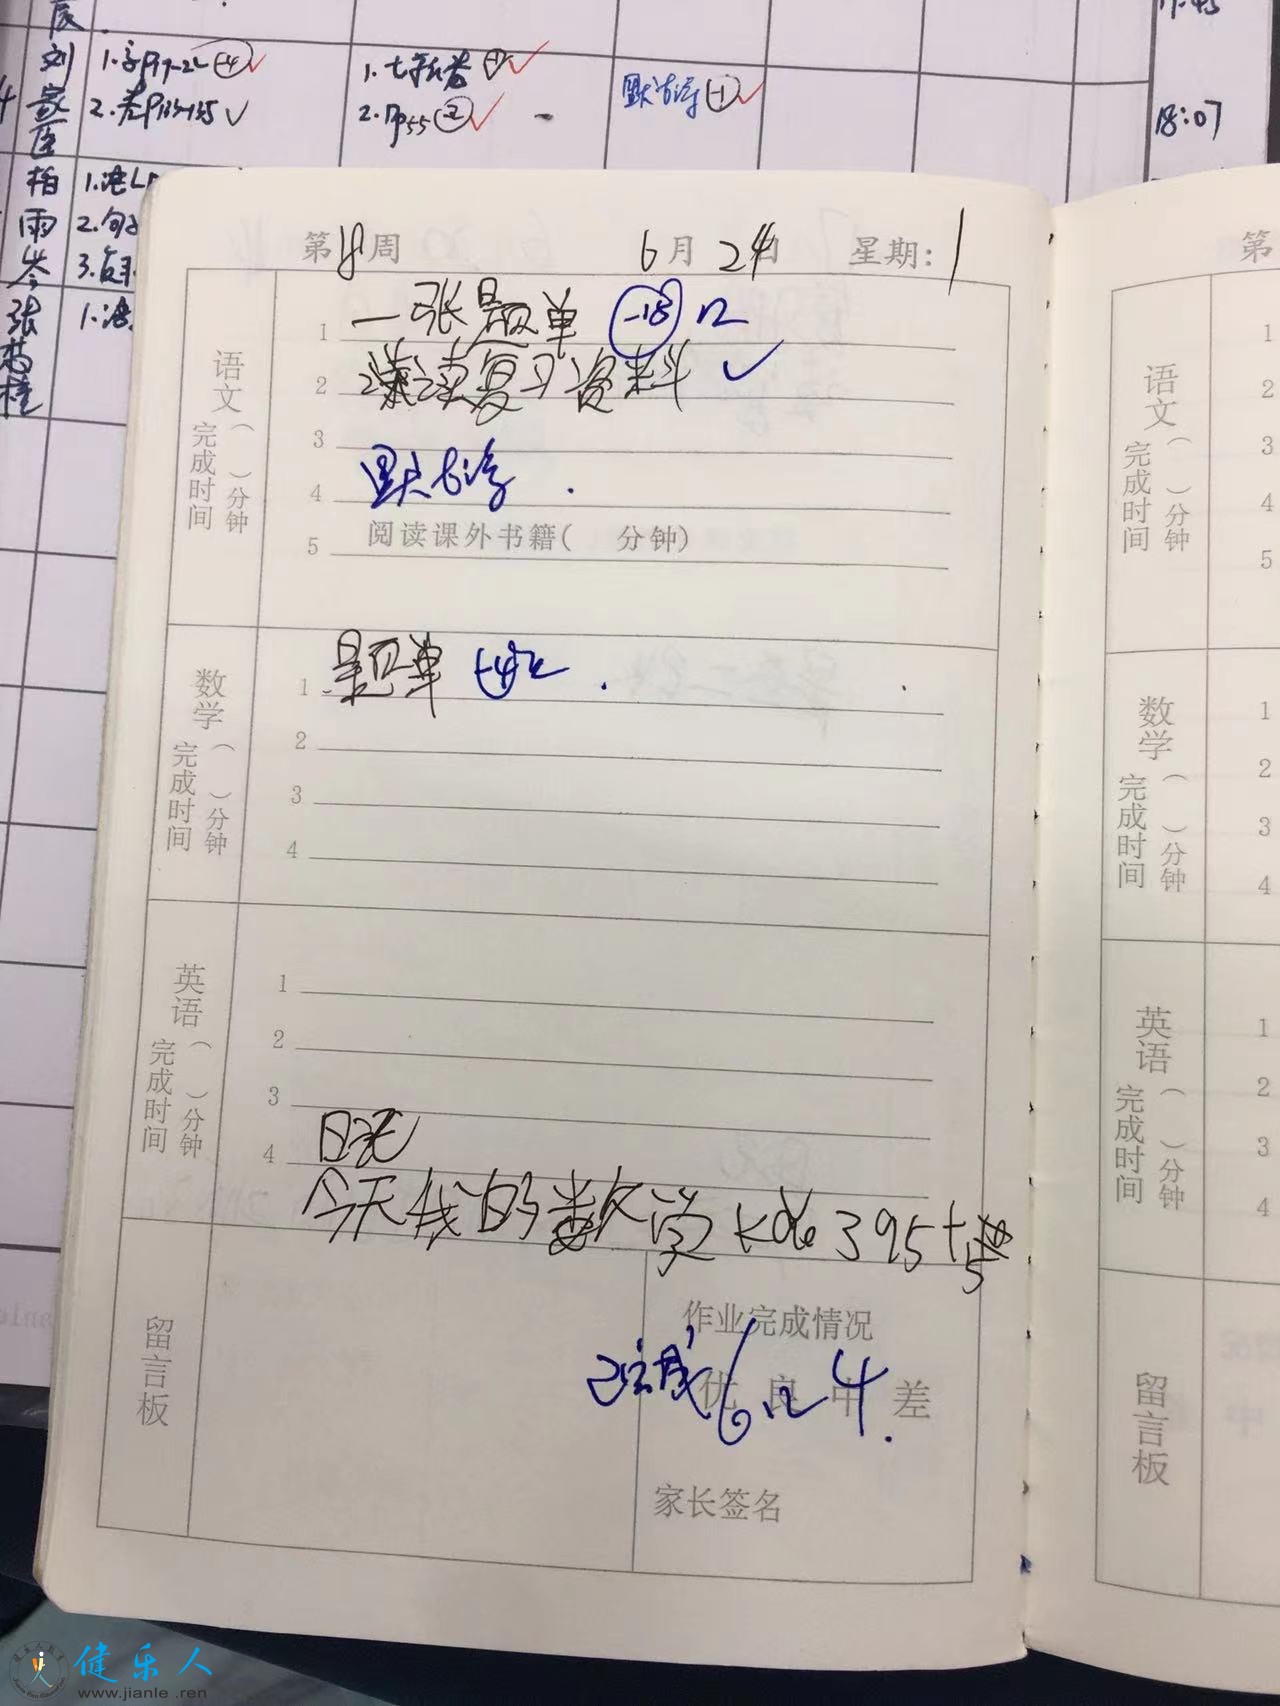 17:45
刘家臣
1.
2.
1.七彩卷
2.Np55 -2
默古诗 -1
18:07
柏雨岑
1.语
2.句
3.复习
张
1.语
第18周 6月24日 星期:1
语文 完成时间( )分钟
1 一张题单 -18
2 读复习资料
3
4 默古诗.
5 阅读课外书籍( 分钟)
数学 完成时间( )分钟
1 题单 -4
2
3
4
英语 完成时间( )分钟
1
2
3
4 日记
今天我的数学 395+
5
留言板
作业完成情况
优 良 中 差
6.24.
家长签名
第
语文 完成时间( )分钟
1
2
3
4
5
数学 完成时间( )分钟
1
2
3
4
英语 完成时间( )分钟
1
2
3
4
留言板
健乐人
www.jianle .ren